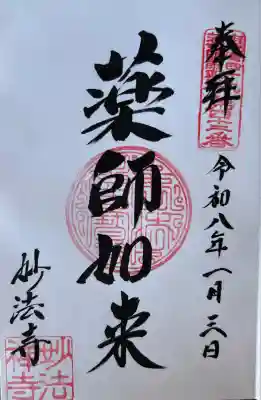 奉拝
令和八年一月三日
薬師如来
妙法寺
妙法
禅寺